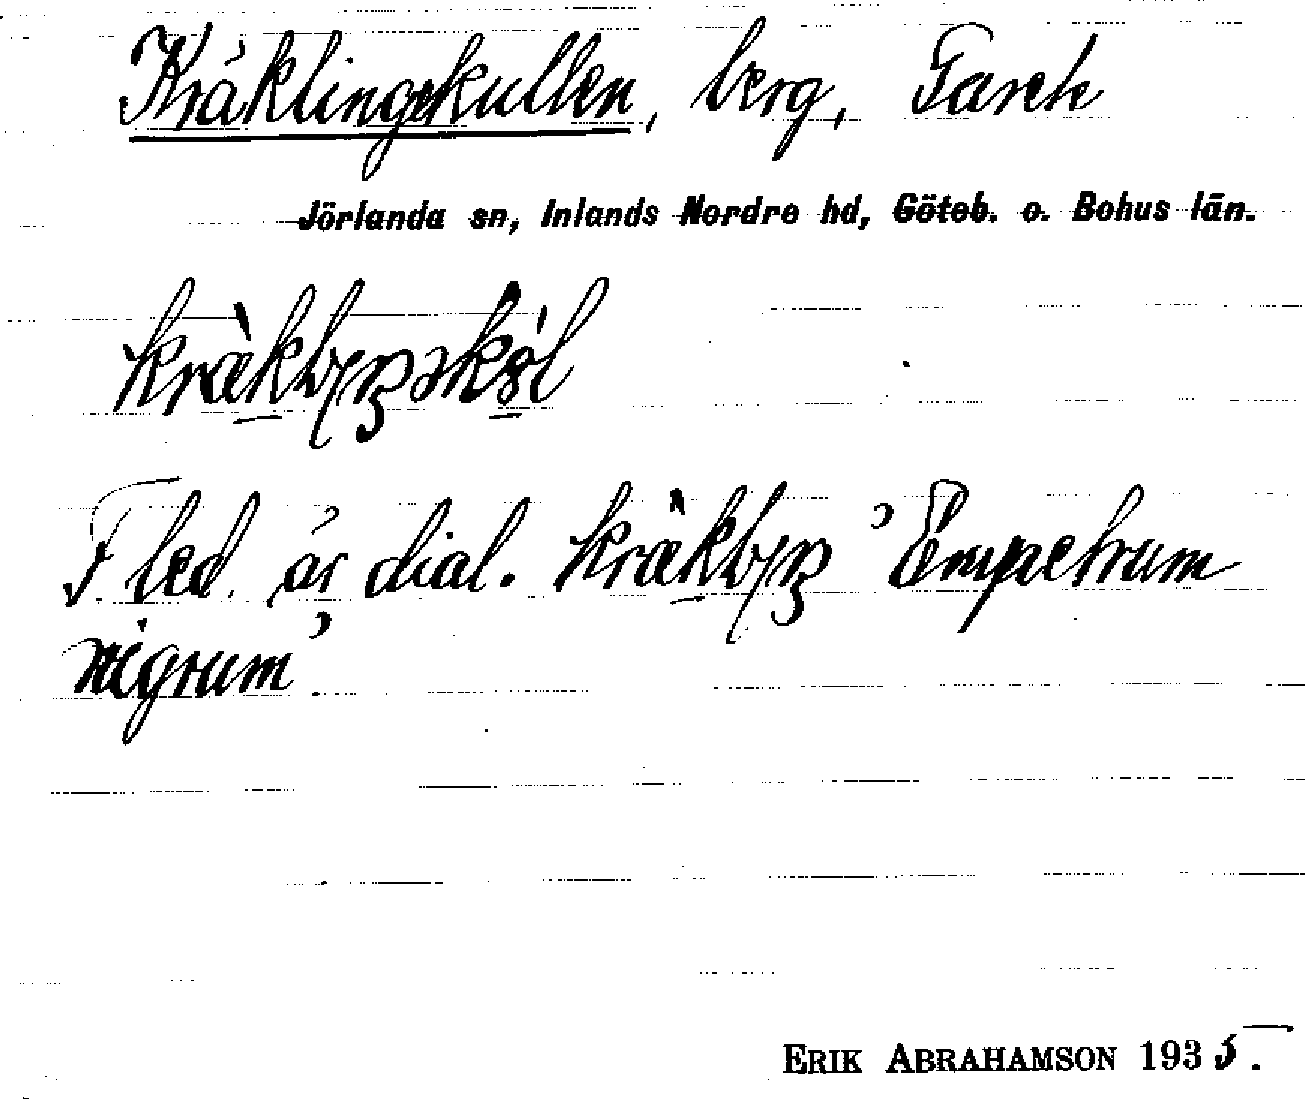 Kräklingekullen, berg, Tareh
Jörlanda sn, Inlands Nordre hd, Göteb. o. Bohus län.
F led är dial. 'Empetrum
nigrum'.
ERIK ABRAHAMSON 1935.